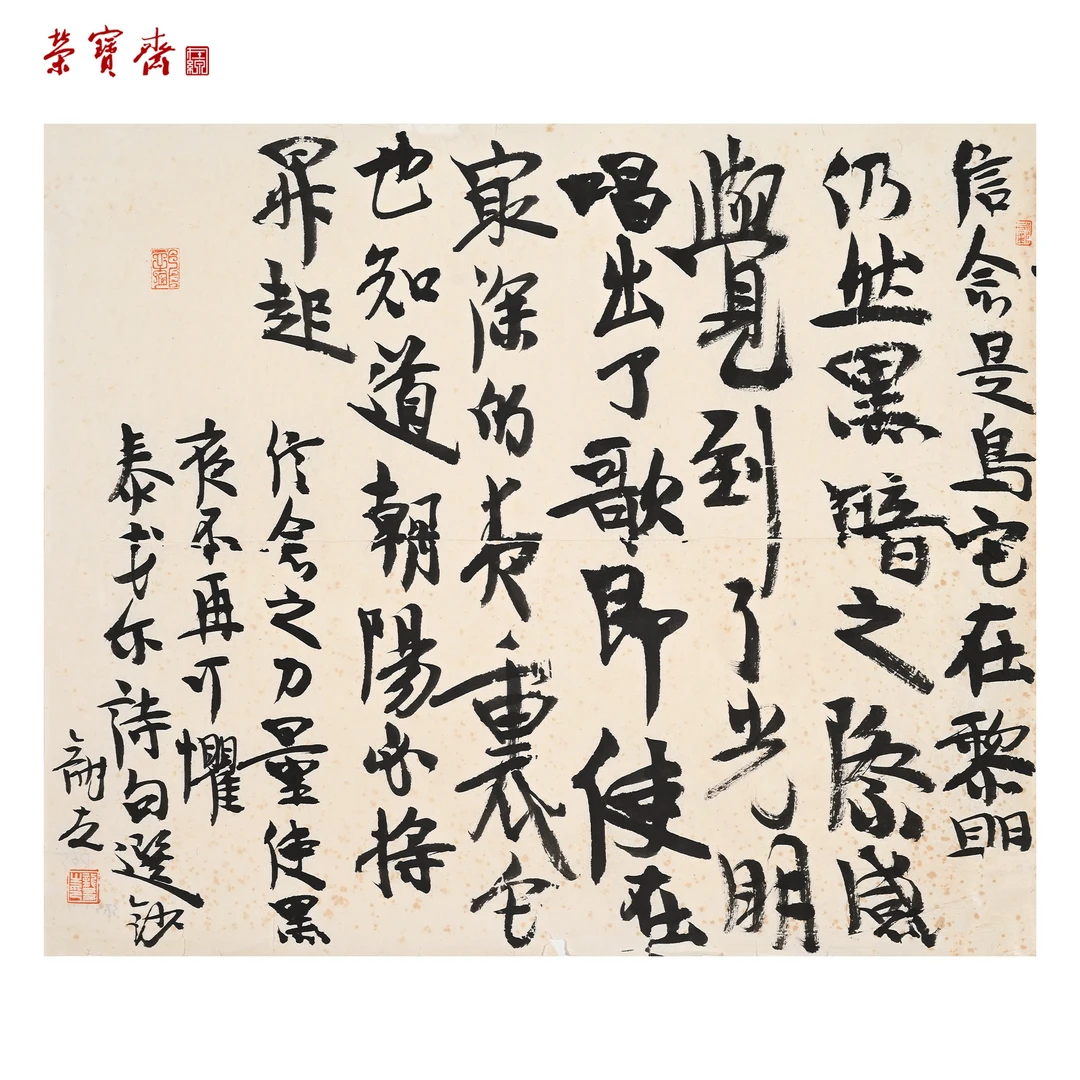 榮寶齋
信念是鳥它在黎明
仍然黑暗之際感
覺到了光明
唱出了歌即使在
最深的夜裏它
也知道朝陽必將
昇起
信念之力量使黑
夜不再可懼
泰戈尔詩句選鈔